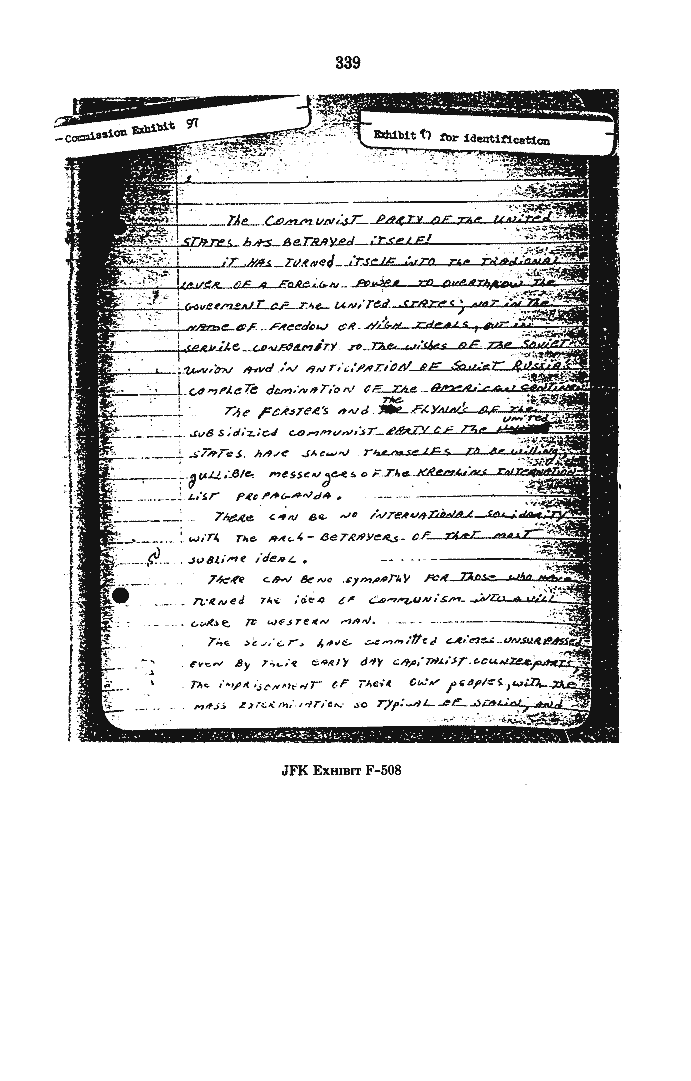 339
Commission Exhibit 97
Exhibit for identification
The COMMUNIST PARTY OF THE UNITED
STATES hAS BETRAYED iTSELF!
iT HAS TURNED ITSELF iNTO THE TRADIONAL
LEVER OF A FOREIGN POWER TO OVERTHROW THE
GOVERMENT OF THE UNITED STATES; NOT IN THE
NAME OF FREEDOM OR HIGH IDEALS, BUT IN
SERVILE CONFORMITY TO THE WISHES OF THE SOVIET
UNION AND IN ANTICIPATION OF SOVIET RUSSIAS
COMPLETE DOMINATION OF THE AMERICAN CONTINE
The FORSTER'S AND The FLYNN'S OF THE
SUBSIDIZIED COMMUNIST PARTY OF THE UNITED
STATES. hAVE SHOWN THEMSELFS TO BE willing,
gULLIBLE messengers OF The KREMLINS INTERNATION
LIST PROPAGANDA.
THERE CAN BE NO INTERNATIONAL SOLIDARITY
WITH THE ARCh-BETRAYERS OF THAT MOST
SUBLIME IDEAL.
THERE CAN BE NO SYMPATHY FOR THOSE WHO HAVE
TURNED THE IDEA OF COMMUNISM INTO A VILL
CURSE TO WESTERN MAN.
The SOVIETS hAVE committed CRIMES UNSURPASSED
EVEN BY THEIR EARLY DAY CAPITALIST COUNTERPARTS,
THE IMPRISONMENT OF THEIR OWN PEOPLES, WITH THE
MASS EXTERMINATION SO TYPICAL OF STALIN, AND
JFK EXHIBIT F-508